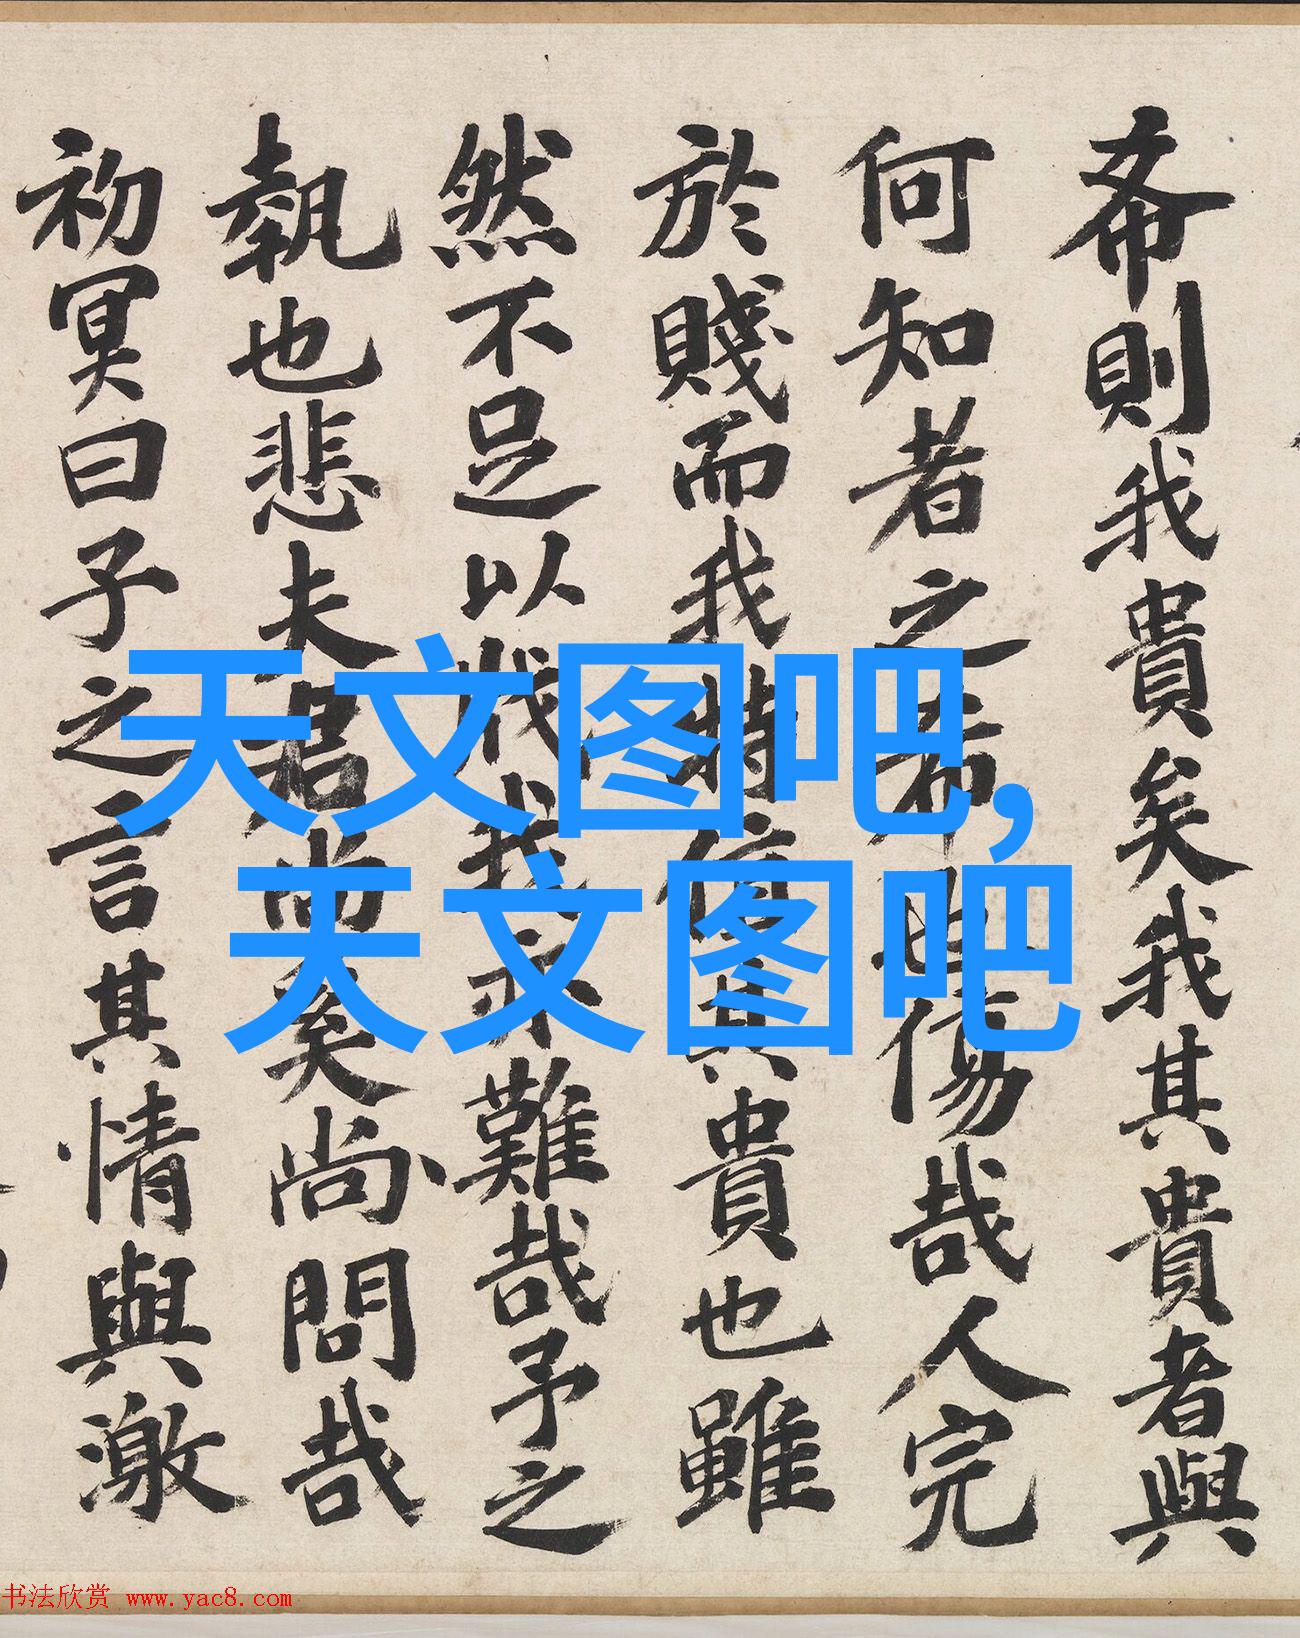 希則我貴矣我其貴者與
何知者之希也傷哉人完
於賤而我特其貴也雖
然不足以我亦難哉予之
執也悲夫君尚矣尚問哉
初冥曰子之言其情與激
天文图吧,
天文图吧
书法欣赏 www.yac8.com